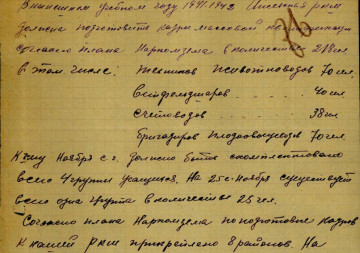 В нынешнем учебном году 1941-1942 РКШ
должна подготовить кадры массовой квалификации
согласно плана Наркомзема в количестве 218 чел
в том числе: Техников животноводов 70 чел.
Ветфельдшеров 40 чел
Счетоводов 38 чел
Бригадиров плодоовощеводов 70 чел.
К 1му ноября с.г. должно быть скомплектовано
всего 4 группы учащихся. На 25с. ноября существует
всего одна группа в количестве 25 чел.
Согласно плана Наркомзема по подготовке кадров
к нашей РКШ прикреплено 8 районов. На